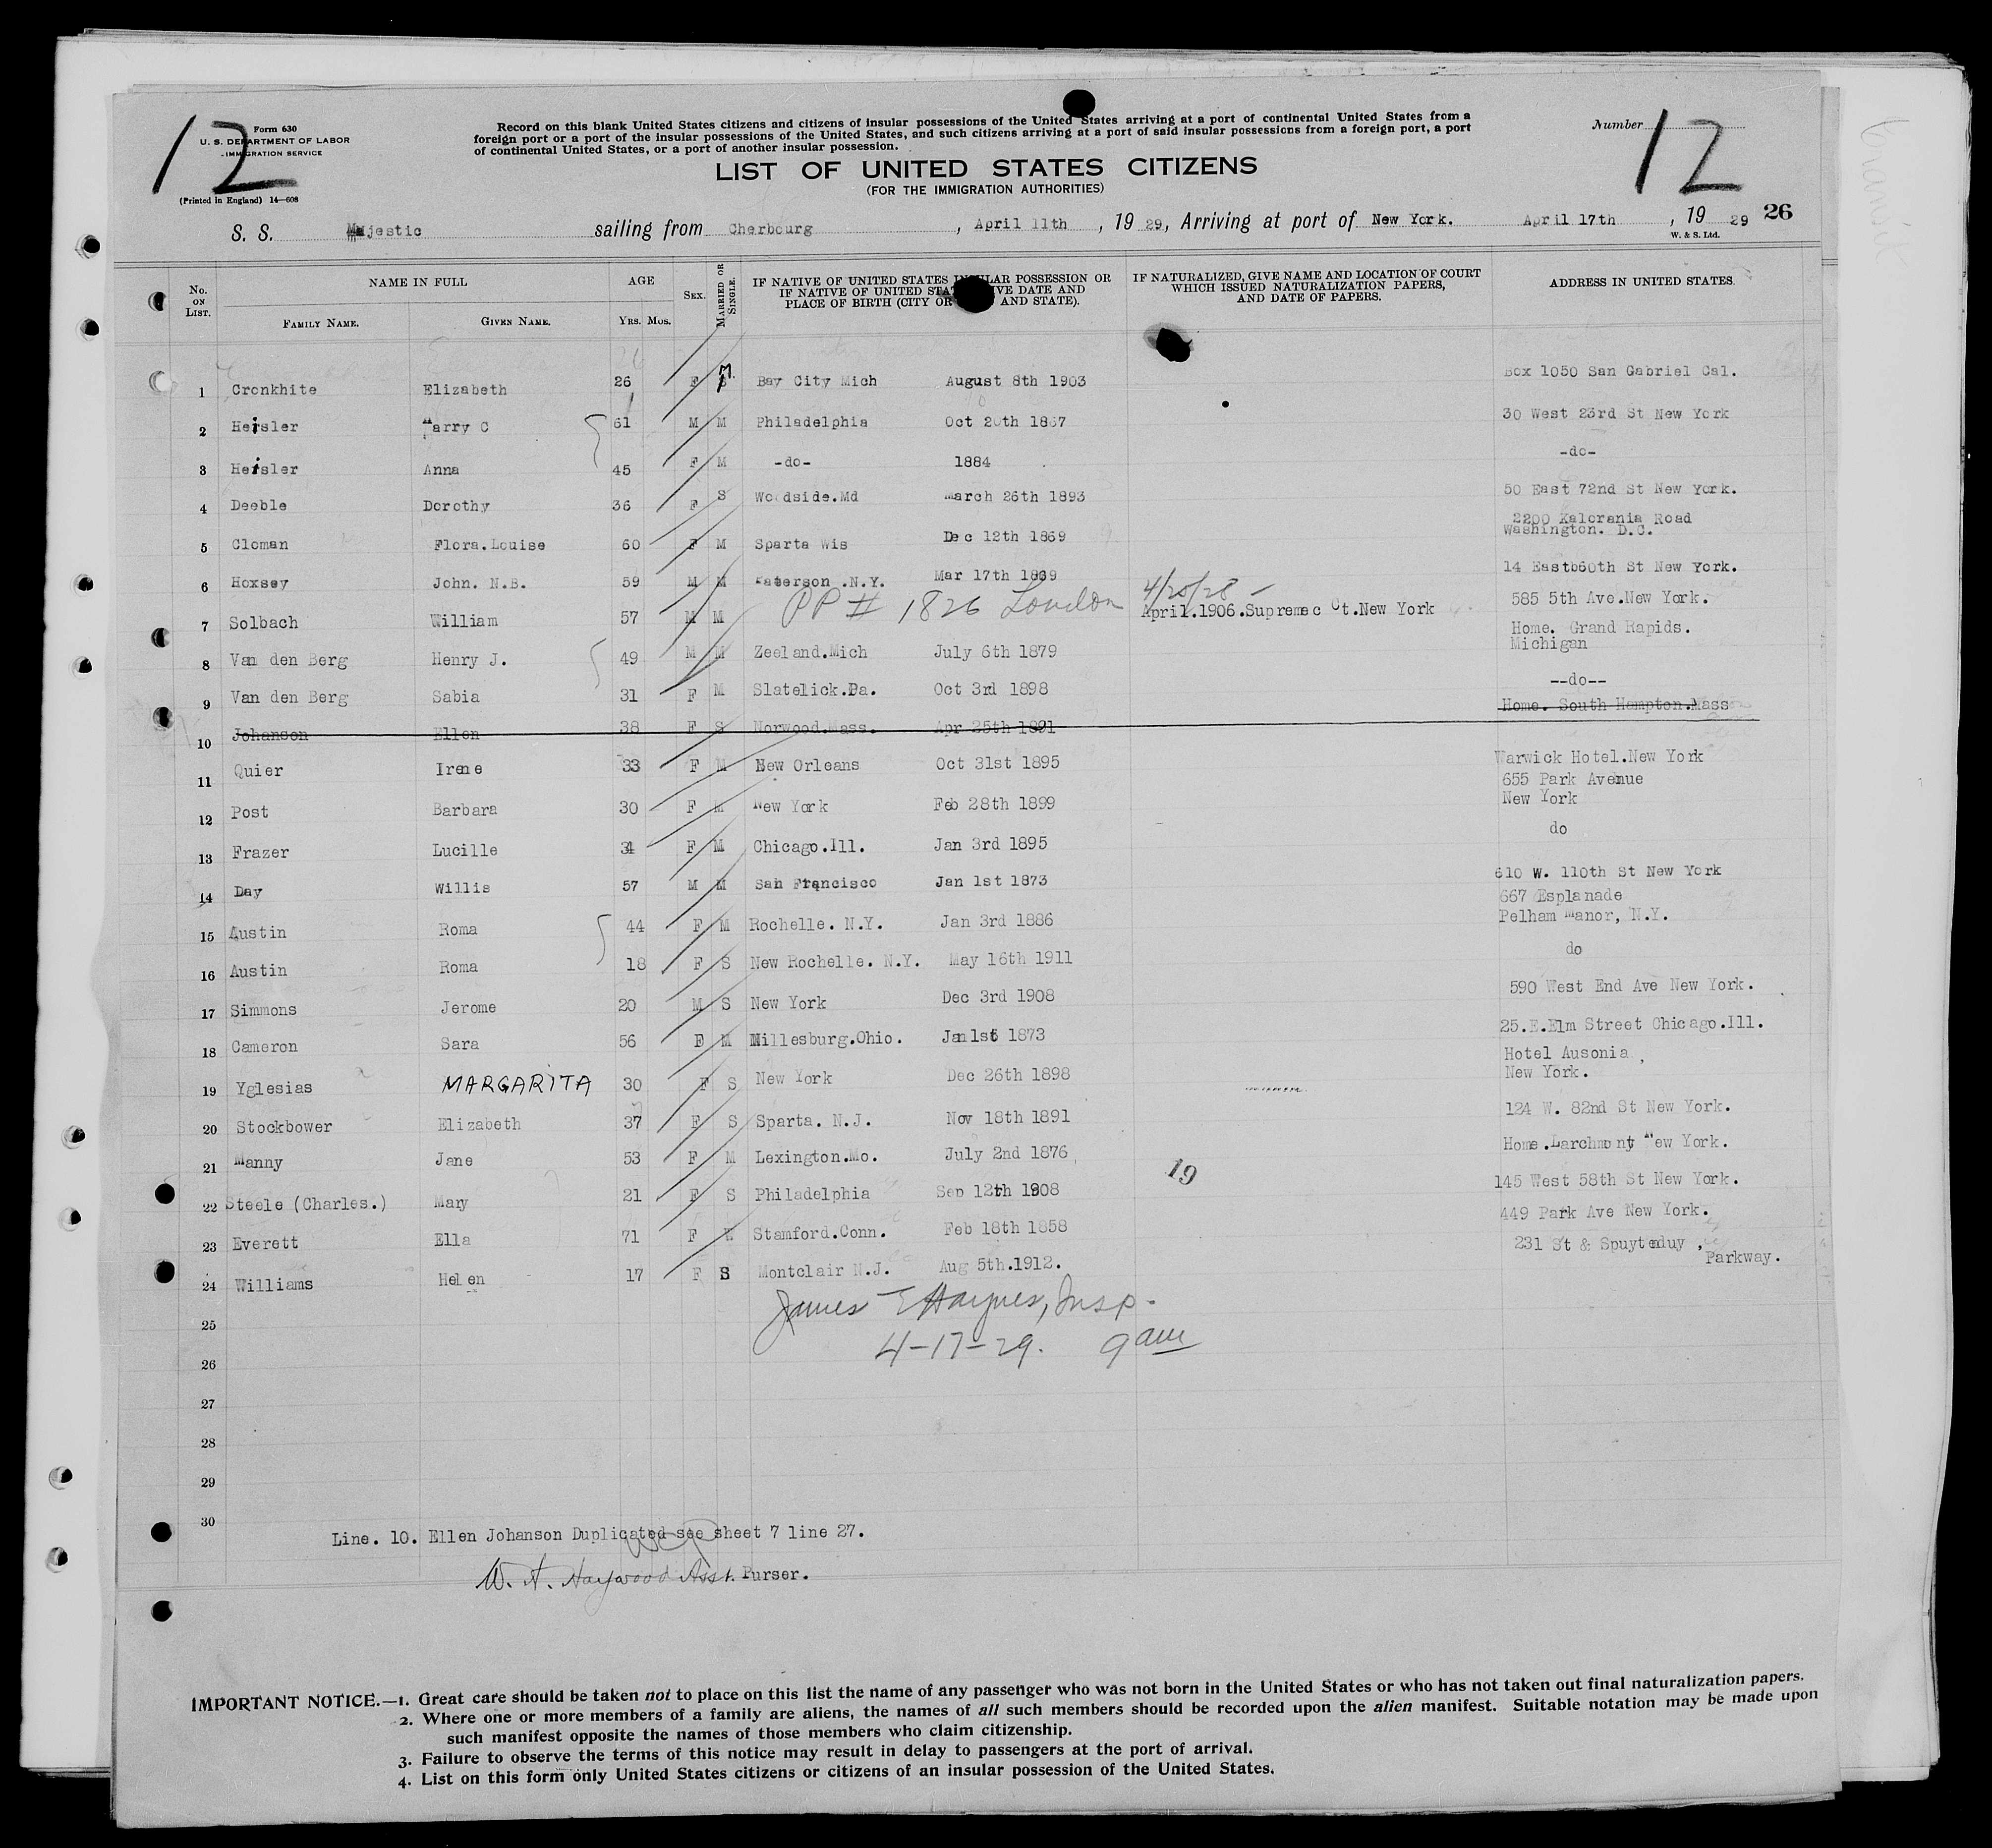 12
Form 630
U. S. DEPARTMENT OF LABOR
IMMIGRATION SERVICE
(Printed in England) 14—608
Record on this blank United States citizens and citizens of insular possessions of the United States arriving at a port of continental United States from a
foreign port or a port of the insular possessions of the United States, and such citizens arriving at a port of said insular possessions from a foreign port, a port
of continental United States, or a port of another insular possession.
Number 12
LIST OF UNITED STATES CITIZENS
(FOR THE IMMIGRATION AUTHORITIES)
S. S. Majestic sailing from Cherbourg, April 11th, 19 29, Arriving at port of New York. April 17th, 19 29 26
W. & S. Ltd.
No. ON LIST. NAME IN FULL FAMILY NAME. GIVEN NAME. AGE YRS. MOS. SEX. MARRIED OR SINGLE. IF NATIVE OF UNITED STATES INSULAR POSSESSION OR IF NATIVE OF UNITED STATES GIVE DATE AND PLACE OF BIRTH (CITY OR AND STATE). IF NATURALIZED, GIVE NAME AND LOCATION OF COURT WHICH ISSUED NATURALIZATION PAPERS, AND DATE OF PAPERS. ADDRESS IN UNITED STATES.
1 Cronkhite Elizabeth 26 F M. Bay City Mich August 8th 1903 Box 1050 San Gabriel Cal.
2 Heisler Harry C 61 M M Philadelphia Oct 20th 1867 30 West 23rd St New York
3 Heisler Anna 45 F M -do- 1884 -do-
4 Deeble Dorothy 36 F S Woodside.Md March 26th 1893 50 East 72nd St New York.
5 Cloman Flora.Louise 60 F M Sparta Wis Dec 12th 1869 2200 Kalorania Road Washington. D.C.
6 Hoxsey John. N.B. 59 M M Paterson .N.Y. Mar 17th 1869 14 East 60th St New York.
7 Solbach William 57 M M PP # 1826 London 4/25/28 - April.1906.Supremec Ct.New York 585 5th Ave.New York.
8 Van den Berg Henry J. 49 M M Zeeland.Mich July 6th 1879 Home. Grand Rapids. Michigan
9 Van den Berg Sabia 31 F M Slatelick.Pa. Oct 3rd 1898 --do--
10 Johanson Ellen 38 F S Norwood.Mass. Apr 25th 1891 Home. South Hampton.Mass
11 Quier Irene 33 F M New Orleans Oct 31st 1895 Warwick Hotel.New York
12 Post Barbara 30 F M New York Feb 28th 1899 655 Park Avenue New York
13 Frazer Lucille 34 F M Chicago.Ill. Jan 3rd 1895 do
14 Day Willis 57 M M San Francisco Jan 1st 1873 610 W. 110th St New York
15 Austin Roma 44 F M Rochelle. N.Y. Jan 3rd 1886 667 Esplanade Pelham Manor, N.Y.
16 Austin Roma 18 F S New Rochelle. N.Y. May 16th 1911 do
17 Simmons Jerome 20 M S New York Dec 3rd 1908 590 West End Ave New York.
18 Cameron Sara 56 F M Millesburg.Ohio. Jan 1st 1873 25.E.Elm Street Chicago.Ill.
19 Yglesias MARGARITA 30 F S New York Dec 26th 1898 Hotel Ausonia, New York.
20 Stockbower Elizabeth 37 F S Sparta. N.J. Nov 18th 1891 124 W. 82nd St New York.
21 Manny Jane 53 F M Lexington.Mo. July 2nd 1876 19 Home.Larchmont New York.
22 Steele (Charles.) Mary 21 F S Philadelphia Sep 12th 1908 145 West 58th St New York.
23 Everett Ella 71 F Stamford.Conn. Feb 18th 1858 449 Park Ave New York.
24 Williams Helen 17 F S Montclair N.J. Aug 5th.1912. 231 St & Spuytenduy, Parkway.
James T Haynes, Insp.
25
4-17-29. 9 am
26
27
28
29
30
Line. 10. Ellen Johanson Duplicated see sheet 7 line 27.
W. A. Haywood Asst. Purser.
IMPORTANT NOTICE.—1. Great care should be taken not to place on this list the name of any passenger who was not born in the United States or who has not taken out final naturalization papers.
2. Where one or more members of a family are aliens, the names of all such members should be recorded upon the alien manifest. Suitable notation may be made upon
such manifest opposite the names of those members who claim citizenship.
3. Failure to observe the terms of this notice may result in delay to passengers at the port of arrival.
4. List on this form only United States citizens or citizens of an insular possession of the United States.